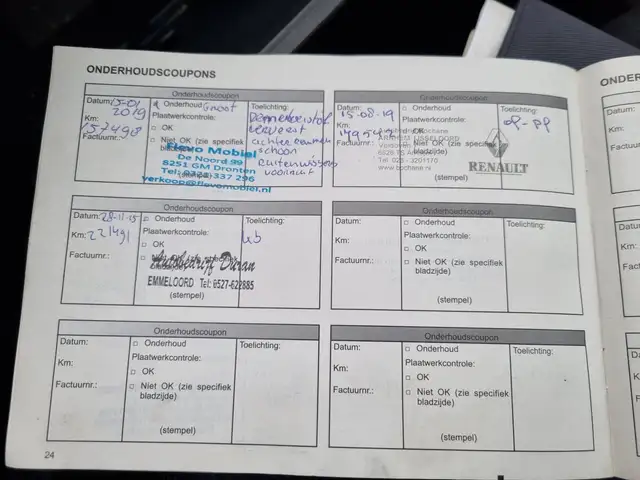 ONDERHOUDSCOUPONS
Onderhoudscoupon
Datum: 15-01
2019
Km:
157498
Factuurnr.:
Onderhoud Groot
Plaatwerkcontrole:
□ OK
□ Niet OK (zie specifiek
(stempel)
Toelichting:
achter
schoon
ruitenwissers
Flevo Mobiel
De Noord 99
8251 GM Dronten
Tel: 0321 337 296
verkoop@flevomobiel.nl
Onderhoudscoupon
15-08-19
Km:
Factuurnr.:
□ Onderhoud
Plaatwerkcontrole:
□ OK
□ Niet OK (zie specifiek
(stempel)
Toelichting:
OP-PP
Bochane
IJSSELOORD
Tel. 026 - 3201170
www.bochane.nl
RENAULT
Onderhoudscoupon
Datum:
Km: 221491
Factuurnr.:
□ Onderhoud
Plaatwerkcontrole:
□ OK
(stempel)
Toelichting:
Autobedrijf Duran
EMMELOORD Tel: 0527-622885
Onderhoudscoupon
Datum:
Km:
Factuurnr.:
□ Onderhoud
Plaatwerkcontrole:
□ OK
□ Niet OK (zie specifiek
bladzijde)
(stempel)
Toelichting:
Onderhoudscoupon
Datum:
Km:
Factuurnr.:
□ Onderhoud
Plaatwerkcontrole:
□ OK
□ Niet OK (zie specifiek
bladzijde)
(stempel)
Toelichting:
Onderhoudscoupon
Datum:
Km:
Factuurnr.:
□ Onderhoud
Plaatwerkcontrole:
□ OK
□ Niet OK (zie specifiek
bladzijde)
(stempel)
Toelichting:
24
ONDERH